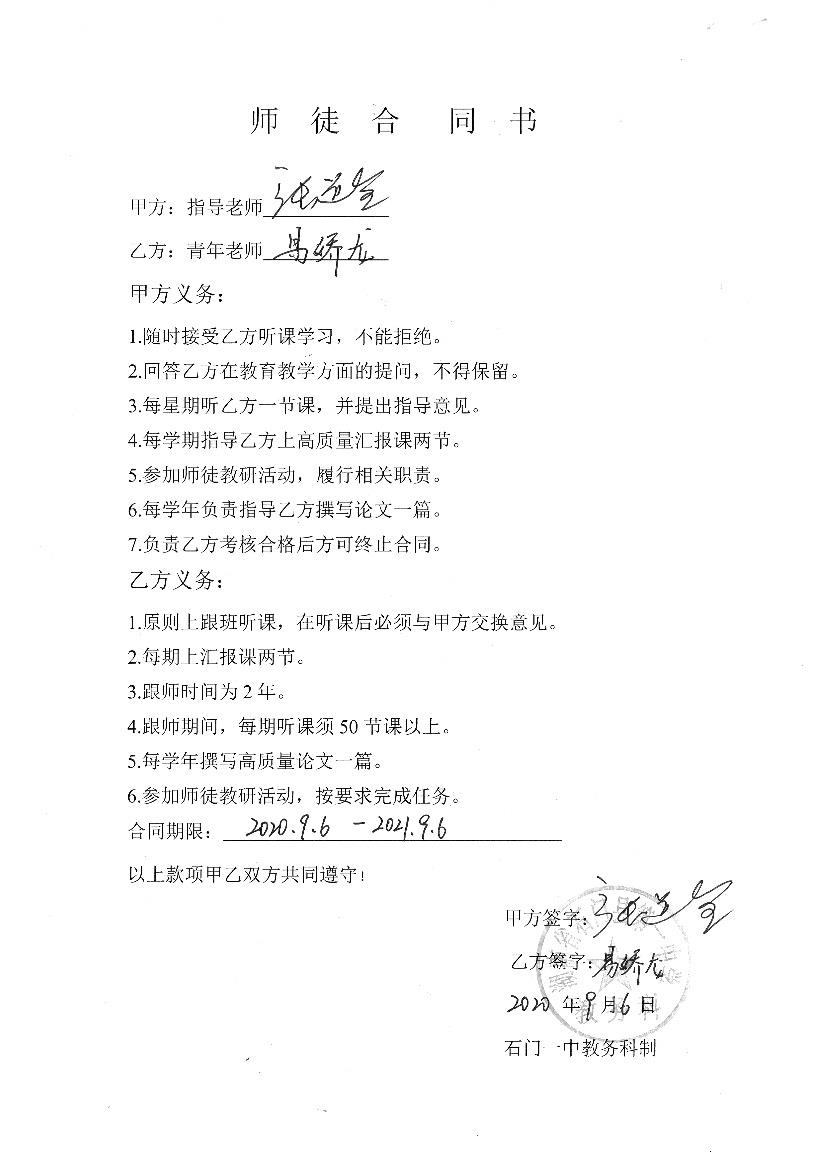 师徒合同书
甲方：指导老师
乙方：青年老师 易娇龙
甲方义务：
1.随时接受乙方听课学习，不能拒绝。
2.回答乙方在教育教学方面的提问，不得保留。
3.每星期听乙方一节课，并提出指导意见。
4.每学期指导乙方上高质量汇报课两节。
5.参加师徒教研活动，履行相关职责。
6.每学年负责指导乙方撰写论文一篇。
7.负责乙方考核合格后方可终止合同。
乙方义务：
1.原则上跟班听课，在听课后必须与甲方交换意见。
2.每期上汇报课两节。
3.跟师时间为2年。
4.跟师期间，每期听课须50节课以上。
5.每学年撰写高质量论文一篇。
6.参加师徒教研活动，按要求完成任务。
合同期限：2020.9.6 - 2021.9.6
以上款项甲乙双方共同遵守！
甲方签字：
乙方签字：易娇龙
2020年9月6日
教务科
石门一中教务科制